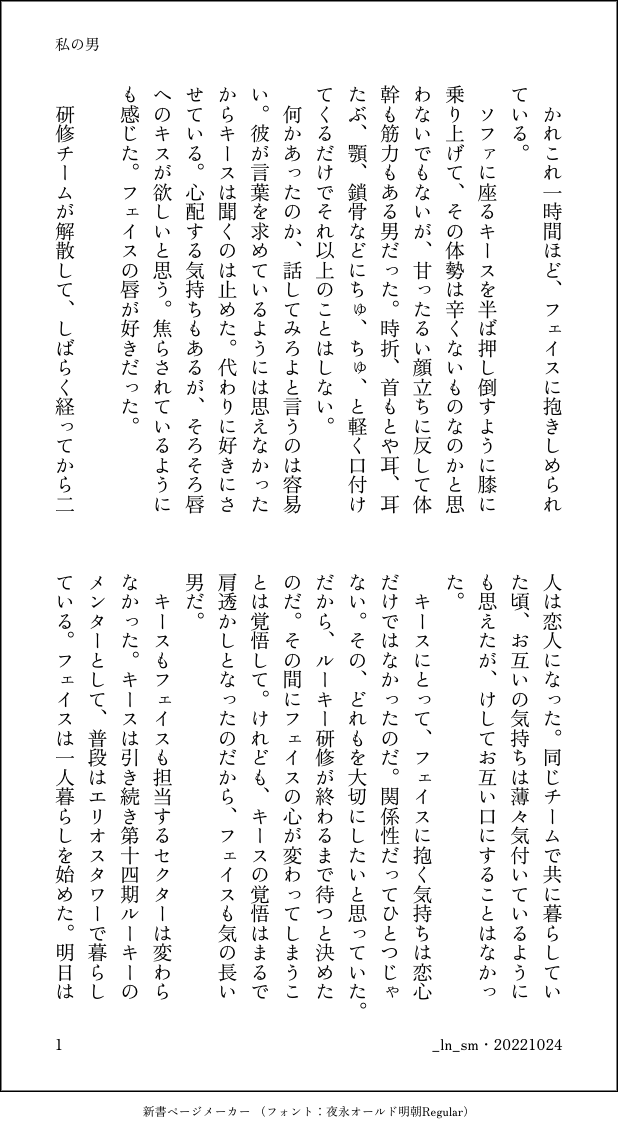 私の男
　かれこれ一時間ほど、フェイスに抱きしめられ
ている。
　ソファに座るキースを半ば押し倒すように膝に
乗り上げて、その体勢は辛くないものなのかと思
わないでもないが、甘ったるい顔立ちに反して体
幹も筋力もある男だった。時折、首もとや耳、耳
たぶ、顎、鎖骨などにちゅ、ちゅ、と軽く口付け
てくるだけでそれ以上のことはしない。
　何かあったのか、話してみろよと言うのは容易
い。彼が言葉を求めているようには思えなかった
からキースは聞くのは止めた。代わりに好きにさ
せている。心配する気持ちもあるが、そろそろ唇
へのキスが欲しいと思う。焦らされているように
も感じた。フェイスの唇が好きだった。
　研修チームが解散して、しばらく経ってから二
人は恋人になった。同じチームで共に暮らしてい
た頃、お互いの気持ちは薄々気付いているように
も思えたが、けしてお互い口にすることはなかっ
た。
　キースにとって、フェイスに抱く気持ちは恋心
だけではなかったのだ。関係性だってひとつじゃ
ない。その、どれもを大切にしたいと思っていた。
だから、ルーキー研修が終わるまで待つと決めた
のだ。その間にフェイスの心が変わってしまうこ
とは覚悟して。けれども、キースの覚悟はまるで
肩透かしとなったのだから、フェイスも気の長い
男だ。
　キースもフェイスも担当するセクターは変わら
なかった。キースは引き続き第十四期ルーキーの
メンターとして、普段はエリオスタワーで暮らし
ている。フェイスは一人暮らしを始めた。明日は
1
_ln_sm・20221024
新書ページメーカー （フォント：夜永オールド明朝Regular）